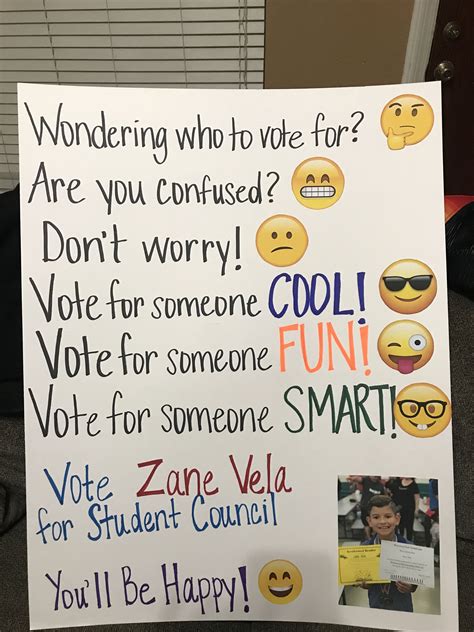 Wondering who to vote for?
Are you confused?
Don't worry!
Vote for someone COOL!
Vote for someone FUN!
Vote for someone SMART!
Vote Zane Vela
for Student Council
You'll Be Happy!